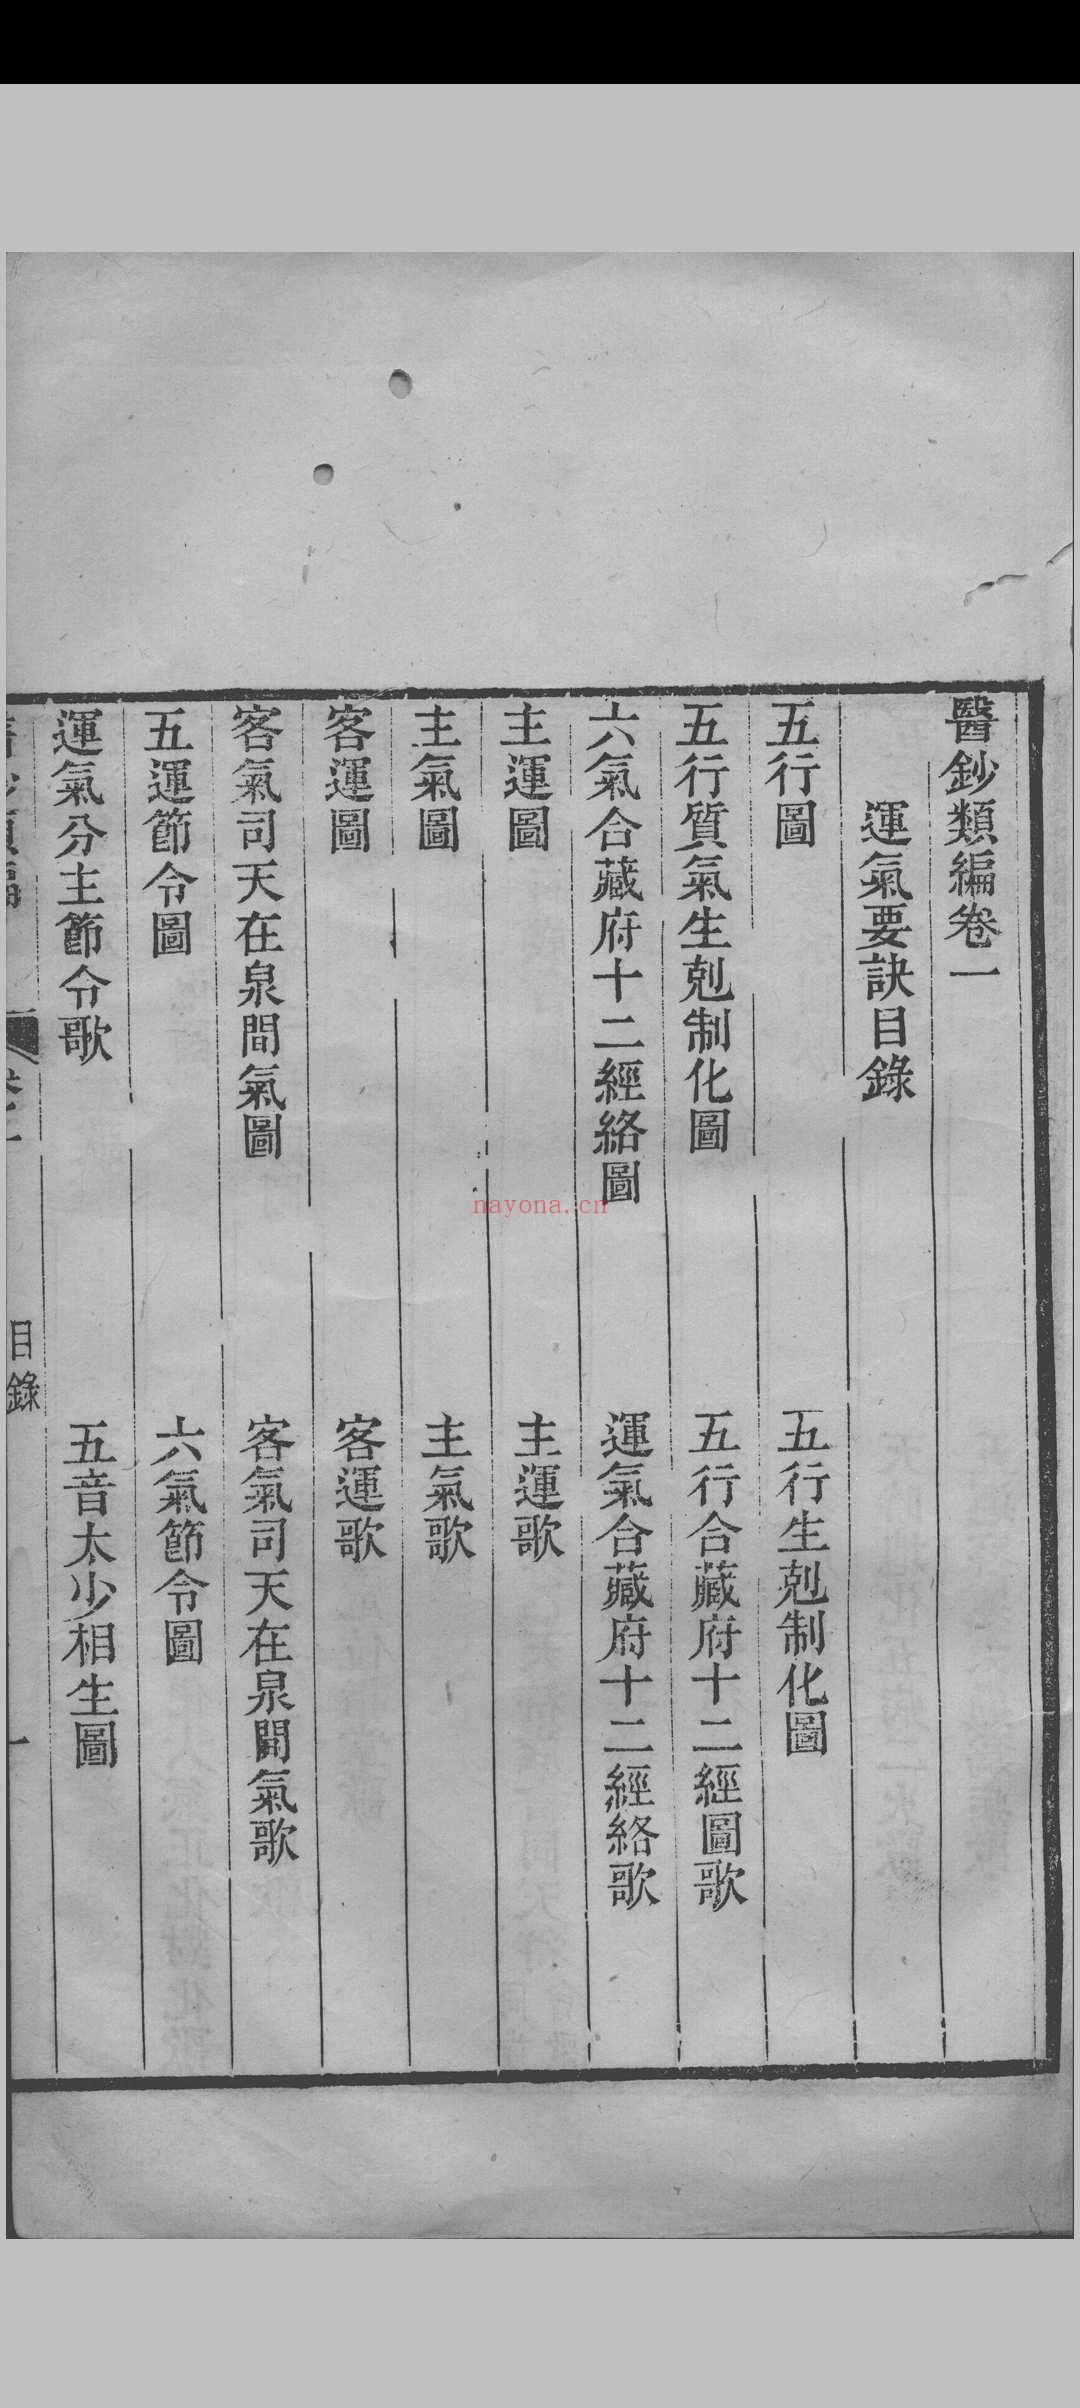 醫鈔類編卷一
運氣要訣目錄
五行圖
五行生剋制化圖
五行質氣生剋制化圖
五行合藏府十二經圖歌
六氣合藏府十二經絡圖
運氣合藏府十二經絡歌
主運圖
主運歌
主氣圖
主氣歌
客運圖
客運歌
客氣司天在泉間氣圖
客氣司天在泉間氣歌
五運節令圖
六氣節令圖
運氣分主節令歌
五音太少相生圖
目錄
一
nayona.cn